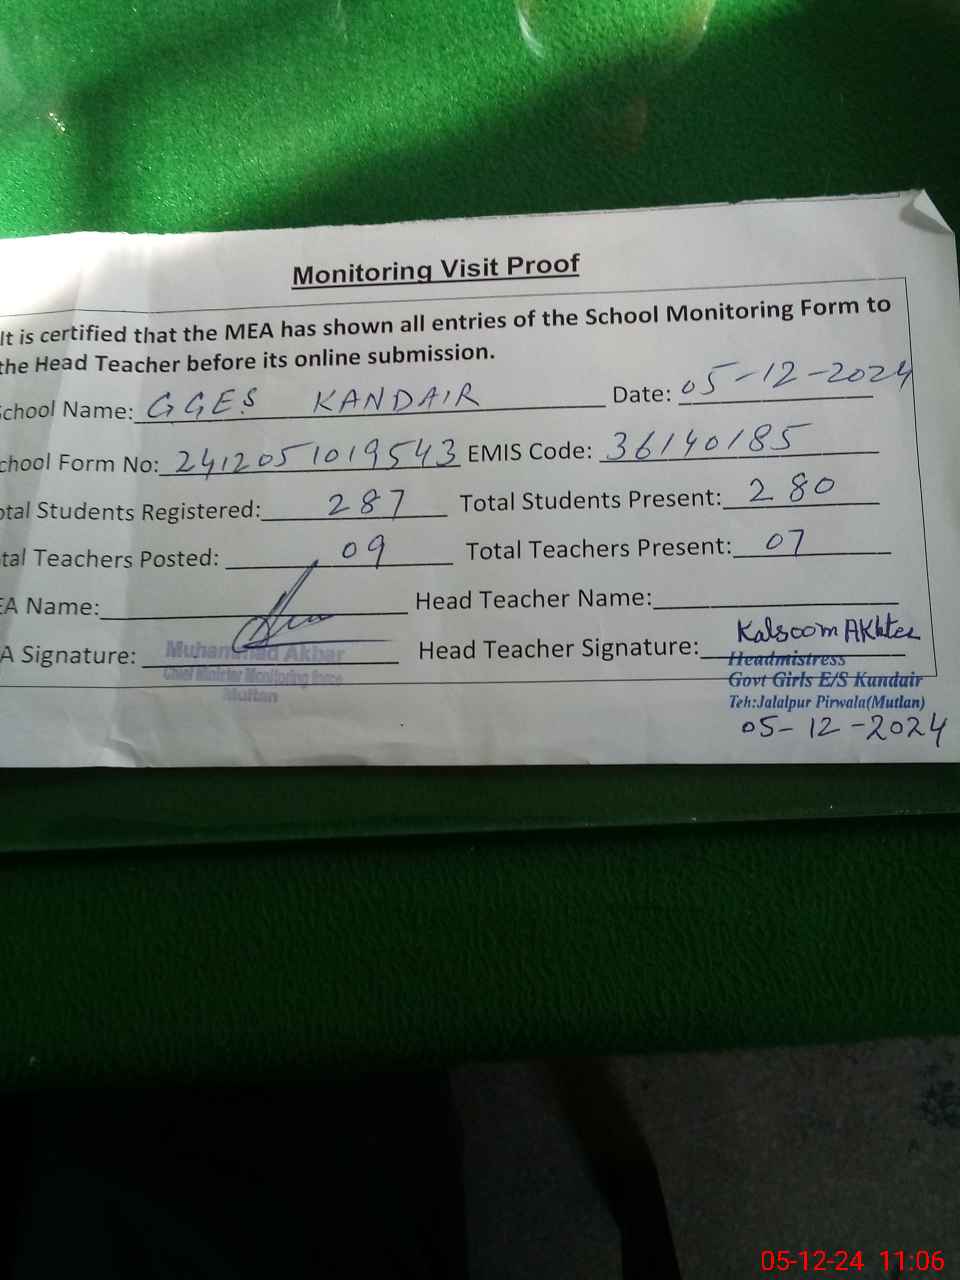 Monitoring Visit Proof
It is certified that the MEA has shown all entries of the School Monitoring Form to
the Head Teacher before its online submission.
School Name: GGES KANDAIR Date: 05-12-2024
chool Form No: 2412051019543 EMIS Code: 36140185
otal Students Registered: 287 Total Students Present: 280
tal Teachers Posted: 09 Total Teachers Present: 07
EA Name: Head Teacher Name:
A Signature: Head Teacher Signature: Kalsoom AKhter
Muhammad Akbar
Chief Minister Monitoring Force
Multan
Headmistress
Govt Girls E/S Kandair
Teh:Jalalpur Pirwala(Mutlan)
05-12-2024
05-12-24 11:06